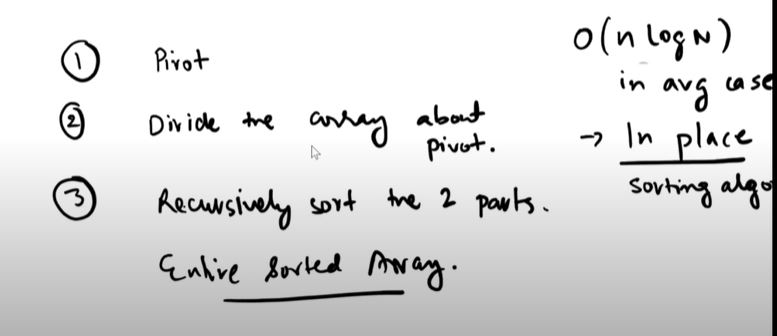 ① Pivot
② Divide the array about
pivot.
③ Recursively sort the 2 parts.
Entire Sorted Array.
O(n log N)
in avg case
→ In place
sorting algo